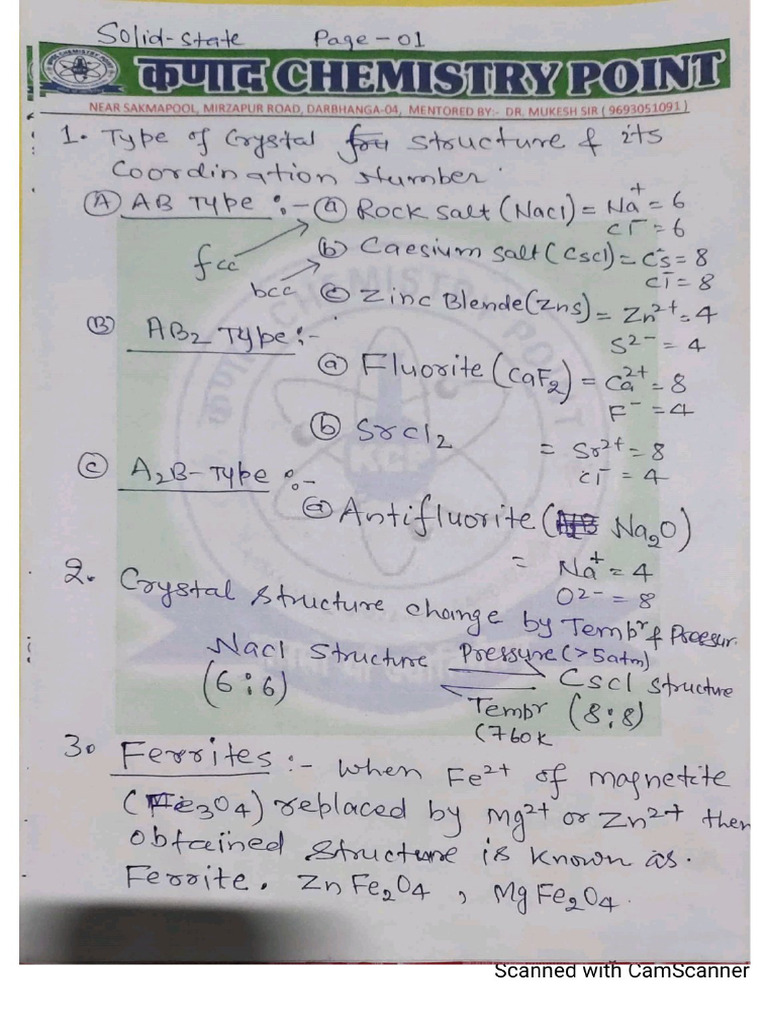 Solid-state Page-01
कणाद CHEMISTRY POINT
NEAR SAKMAPOOL, MIRZAPUR ROAD, DARBHANGA-04, MENTORED BY:- DR. MUKESH SIR ( 9693051091 )
1. Type of Crystal structure & its
Coordination Number.
(A) AB Type :- (a) Rock salt (Nacl) = Na+ = 6
Cl- = 6
fcc (b) Caesium salt (Cscl) = Cs = 8
Cl- = 8
bcc (c) Zinc Blende (Zns) = Zn2+ = 4
S2- = 4
(B) AB2 Type :-
(a) Fluorite (CaF2) = Ca2+ = 8
F- = 4
(b) Srcl2 = Sr2+ = 8
Cl- = 4
(C) A2B-Type :-
(a) Antifluorite (Na2O)
= Na+ = 4
O2- = 8
2. Crystal structure change by Tempr & Pressur.
Nacl structure Pressure (>5atm) Cscl structure
(6:6) Tempr (8:8)
(760k
3. Ferrites :- when Fe2+ of magnetite
(Fe3O4) replaced by Mg2+ or Zn2+ then
obtained structure is known as.
Ferrite. ZnFe2O4 , MgFe2O4.
KCP
Scanned with CamScanner